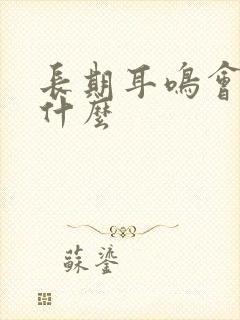 長期耳鳴會
什麼
蘇鎏